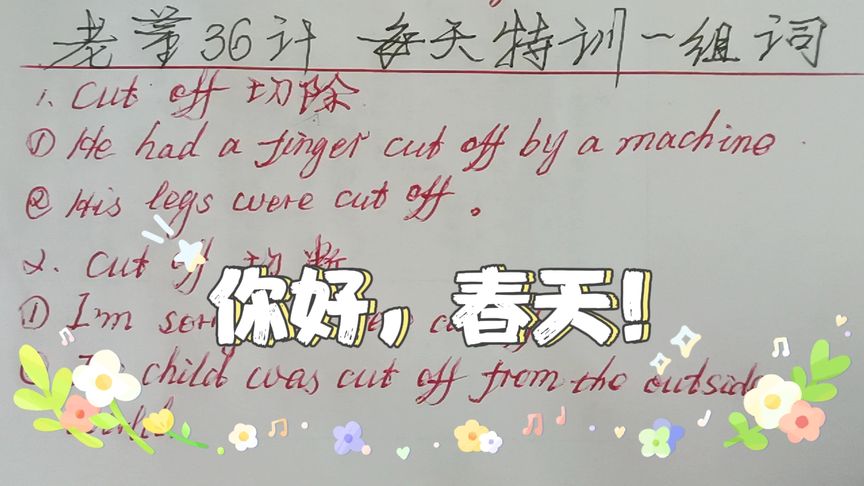 老董36计 每天特训一组词
1. cut off 切除
① He had a finger cut off by a machine.
② His legs were cut off.
2. cut off 切断
你好，春天!
① I'm
② child was cut off from the outside